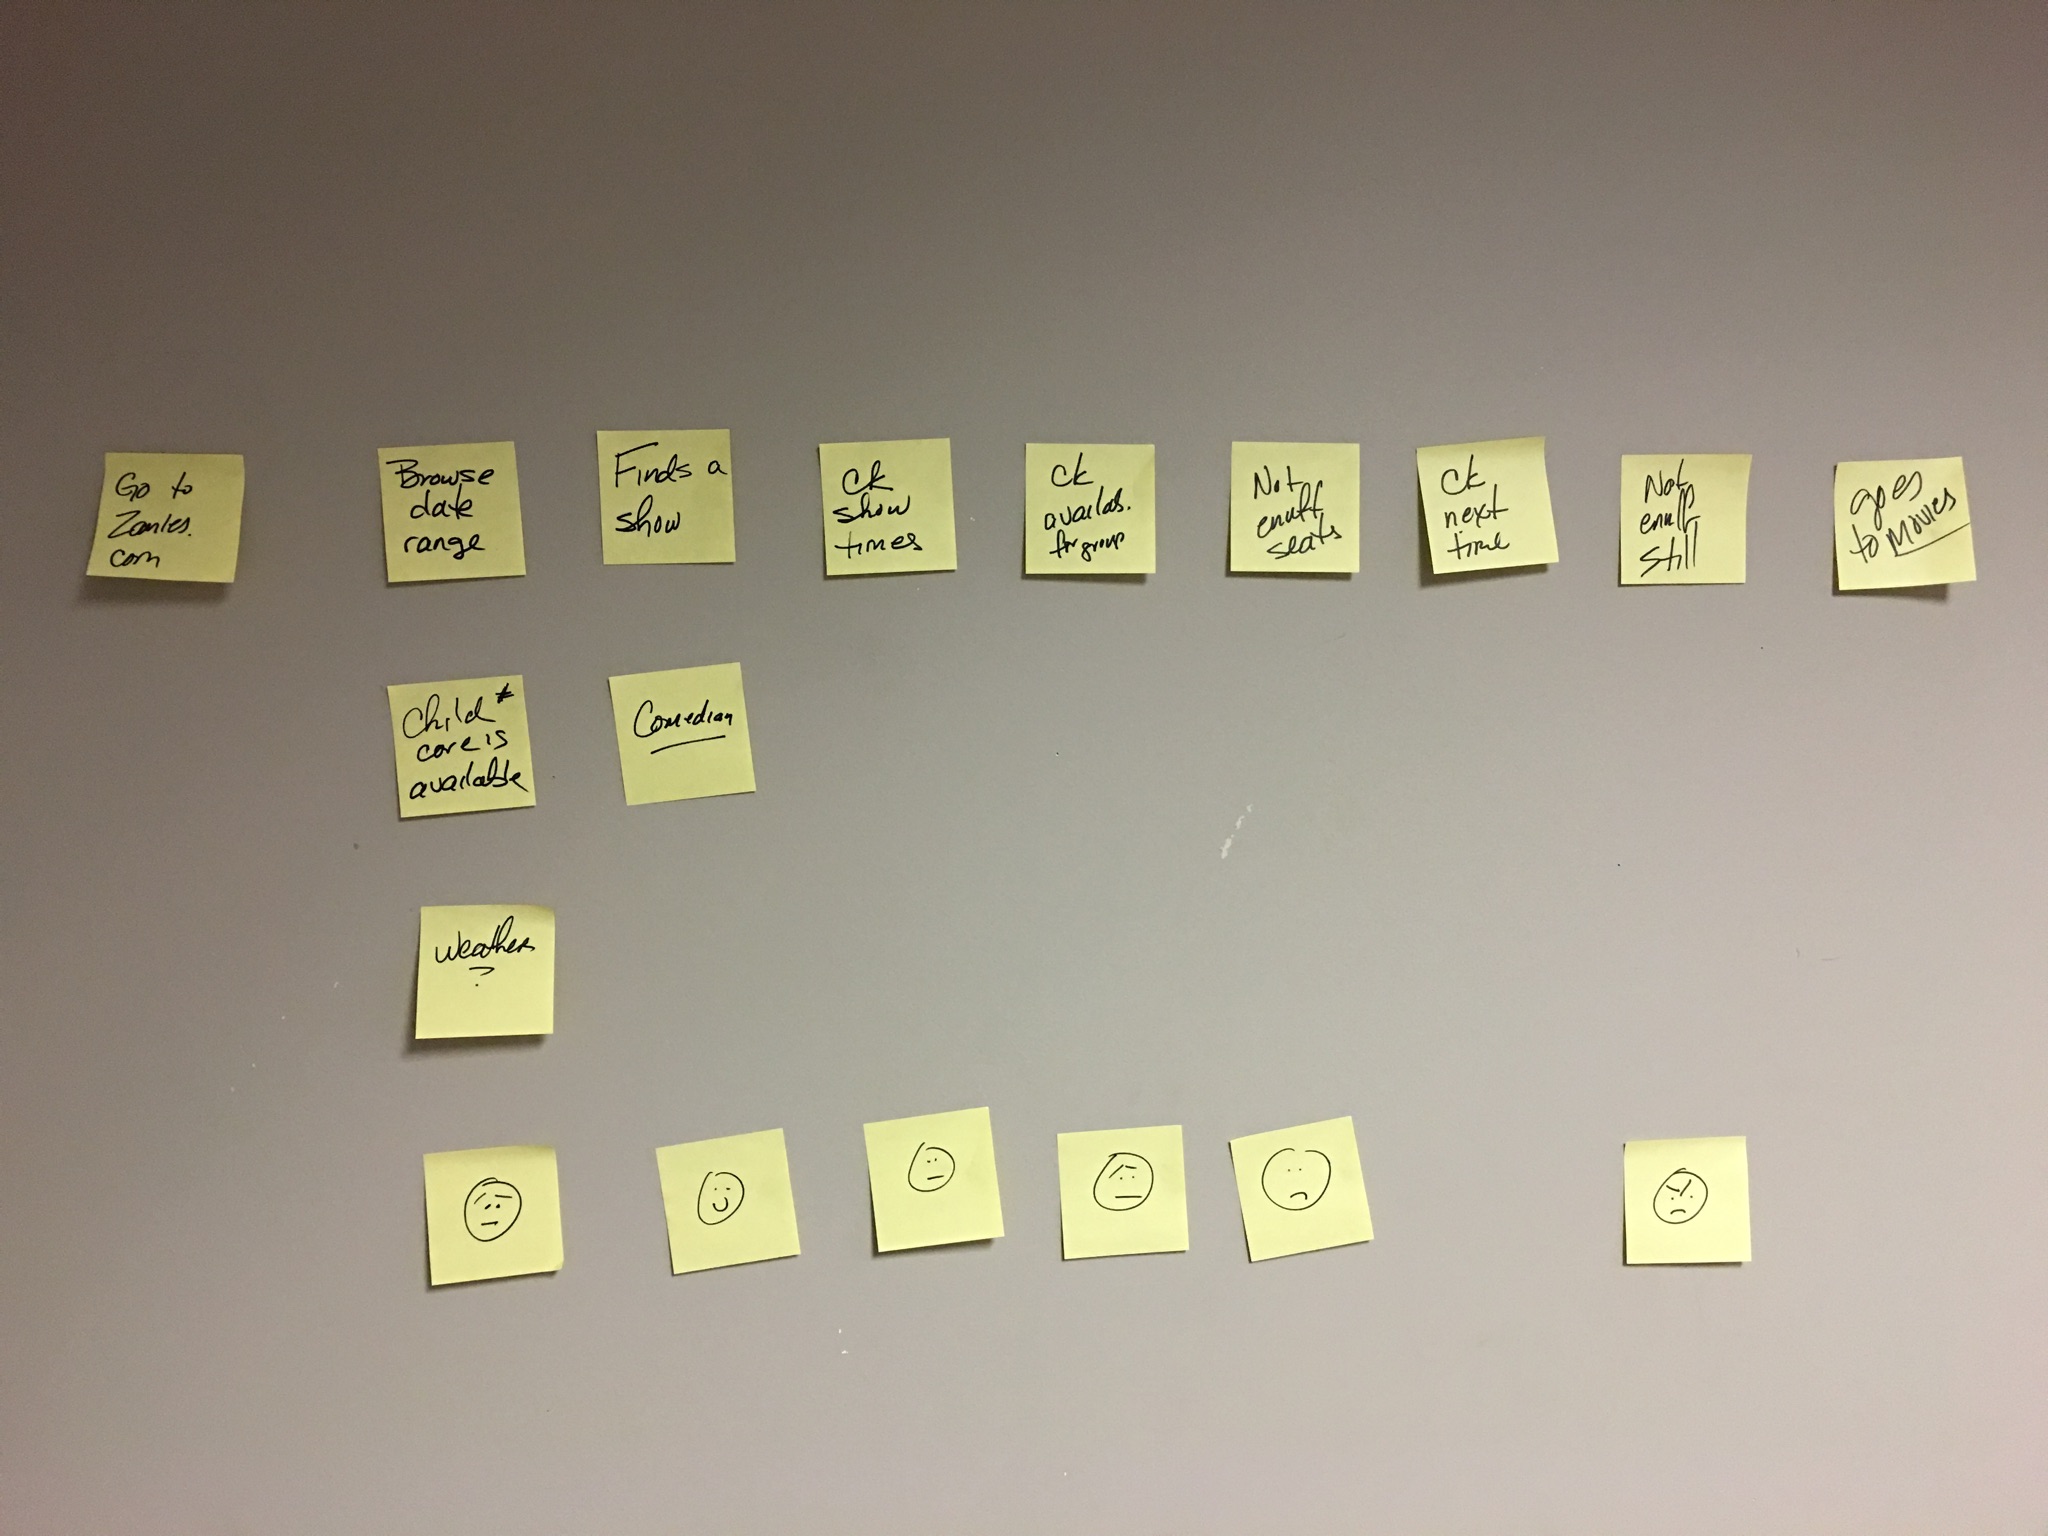 Go to
Zanies.
com
Browse
date
range
Finds a
show
Ck
show
times
Ck
availab.
for group
Not
enuff
seats
Ck
next
time
Not
enuff
still
goes
to Movies
Child *
care is
available
Comedian
Weather
?